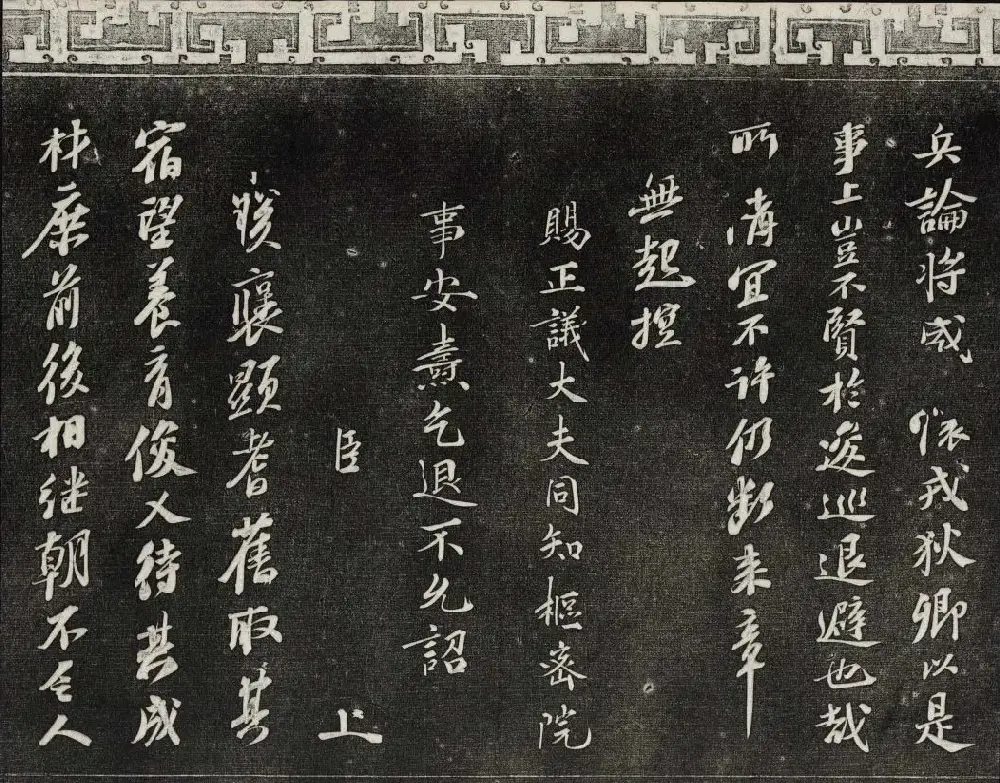 兵論將威 懷戎狄卿以是
事上豈不賢於逡巡退避也哉
所請宜不許仍斷來章
無起控
賜正議大夫同知樞密院
事安燾乞退不允詔
臣 上
朕褒顯耆舊取其
宿望養育俊乂待其成
材庶前後相繼朝不乏人